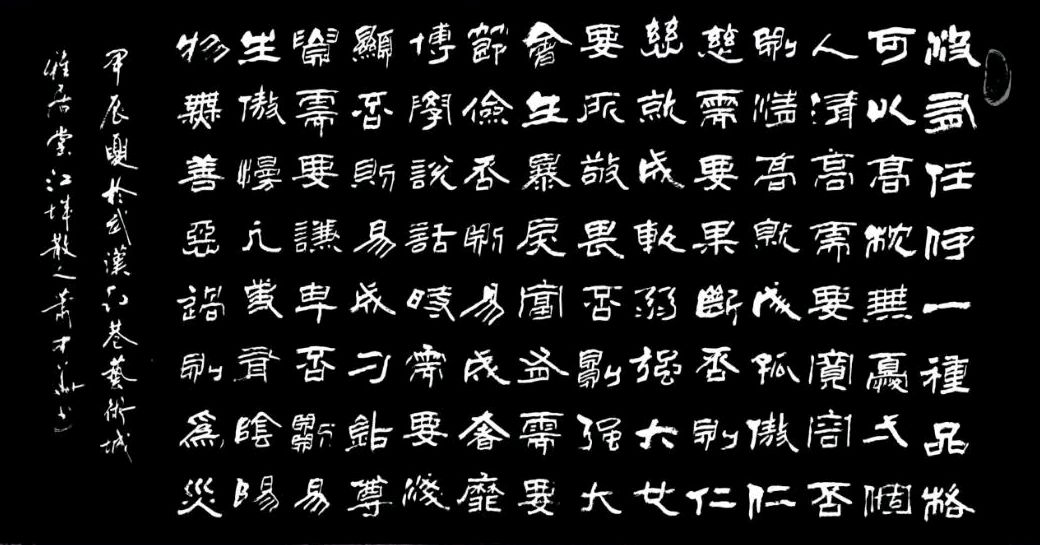 沒有任何一種品格
可以高枕無憂弌個
人清高需要寬容否
則清高就成孤傲仁
慈需要果斷否則仁
慈就成軟弱強大也
要所敬畏否則強大
會生暴戾富足需要
節儉否則易成奢靡
博學說話時需要淺
顯否則易成刁鉆尊
貴需要謙卑否則易
生傲慢凡事有陰陽
物無善惡過則為災
甲辰夏於武漢巷藝術城
雅居堂江城散人蕭才书